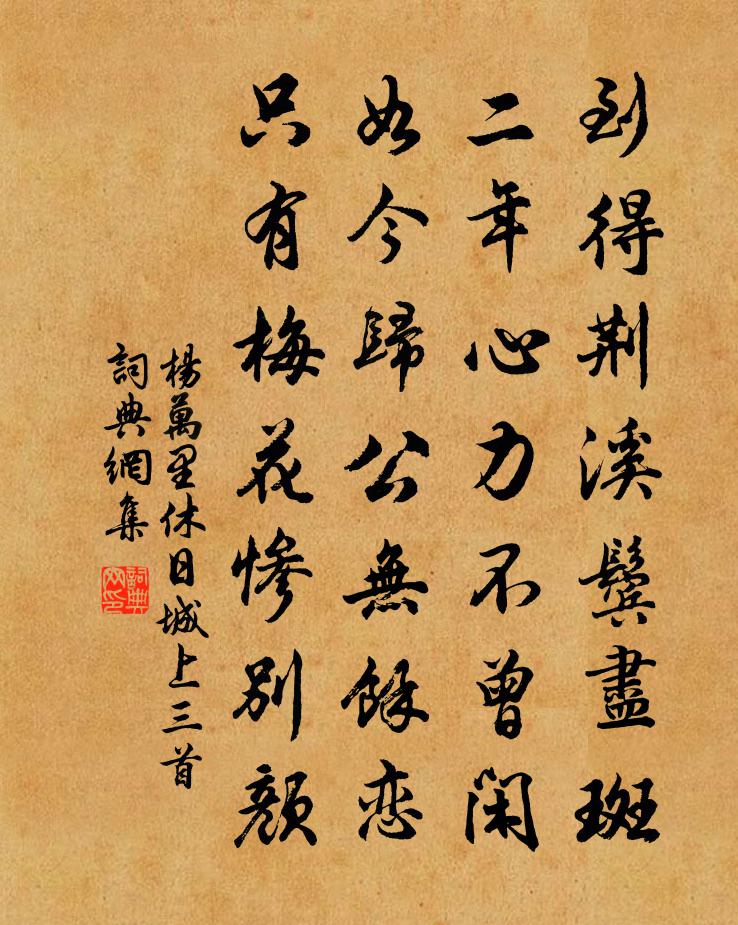 到得荆溪鬢盡斑
二年心力不曾閑
如今歸公無餘恋
只有梅花慘别顔
楊萬里休日城上三首
詞典網集
詞典
网印